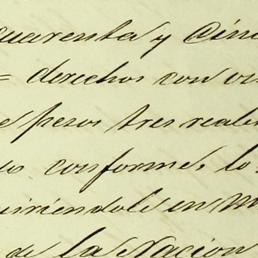 quarenta y Cinc
= derechos con in
e pesos tres reale
o conforme, lo
uiriéndole en M
de la Nacion